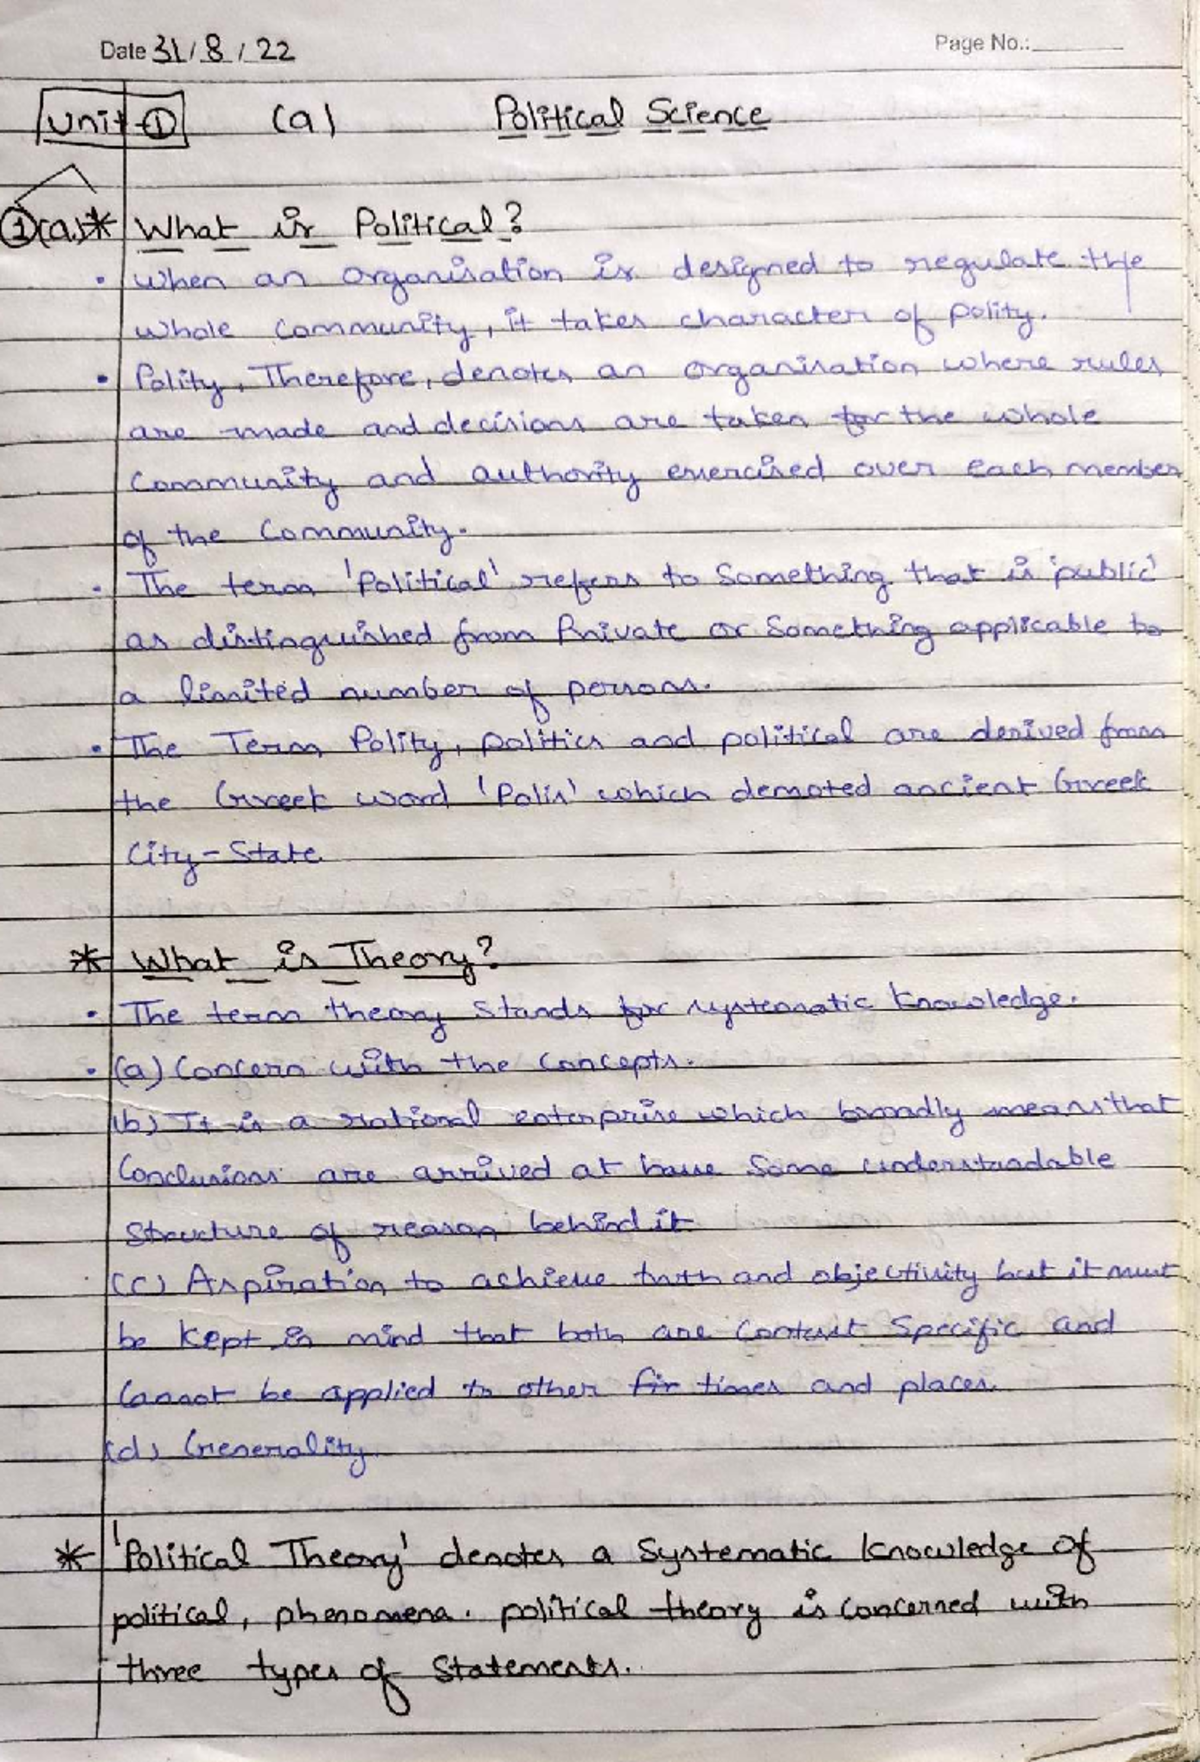 Date 31/8/22 Page No.:
Unit-① (a) Political Science
①(a)* What is Political?
• When an organisation is designed to regulate the
whole community, it takes character of polity.
• Polity, Therefore, denotes an organisation where rules
are made and decisions are taken for the whole
community and authority exercised over each member
of the Community.
• The term 'Political' refers to Something that is 'public'
as distinguished from Private or Something applicable to
a limited number of persons.
• The Term Polity, politics and political are derived from
the Greek word 'Polis' which demoted ancient Greek
City-State
* What is Theory?
• The term theory Stands for systematic Knowledge.
• (a) Concern with the Concepts.
(b) It is a rational enterprise which broadly means that
Conclusions are arrived at have Some understandable
Structure of reason behind it
(c) Aspiration to achieve truth and objectivity but it must
be kept in mind that both are Context Specific and
Cannot be applied to other for times and places.
(d) Generality
* 'Political Theory' denotes a Systematic Knowledge of
political, phenomena. political theory is concerned with
three types of Statements.